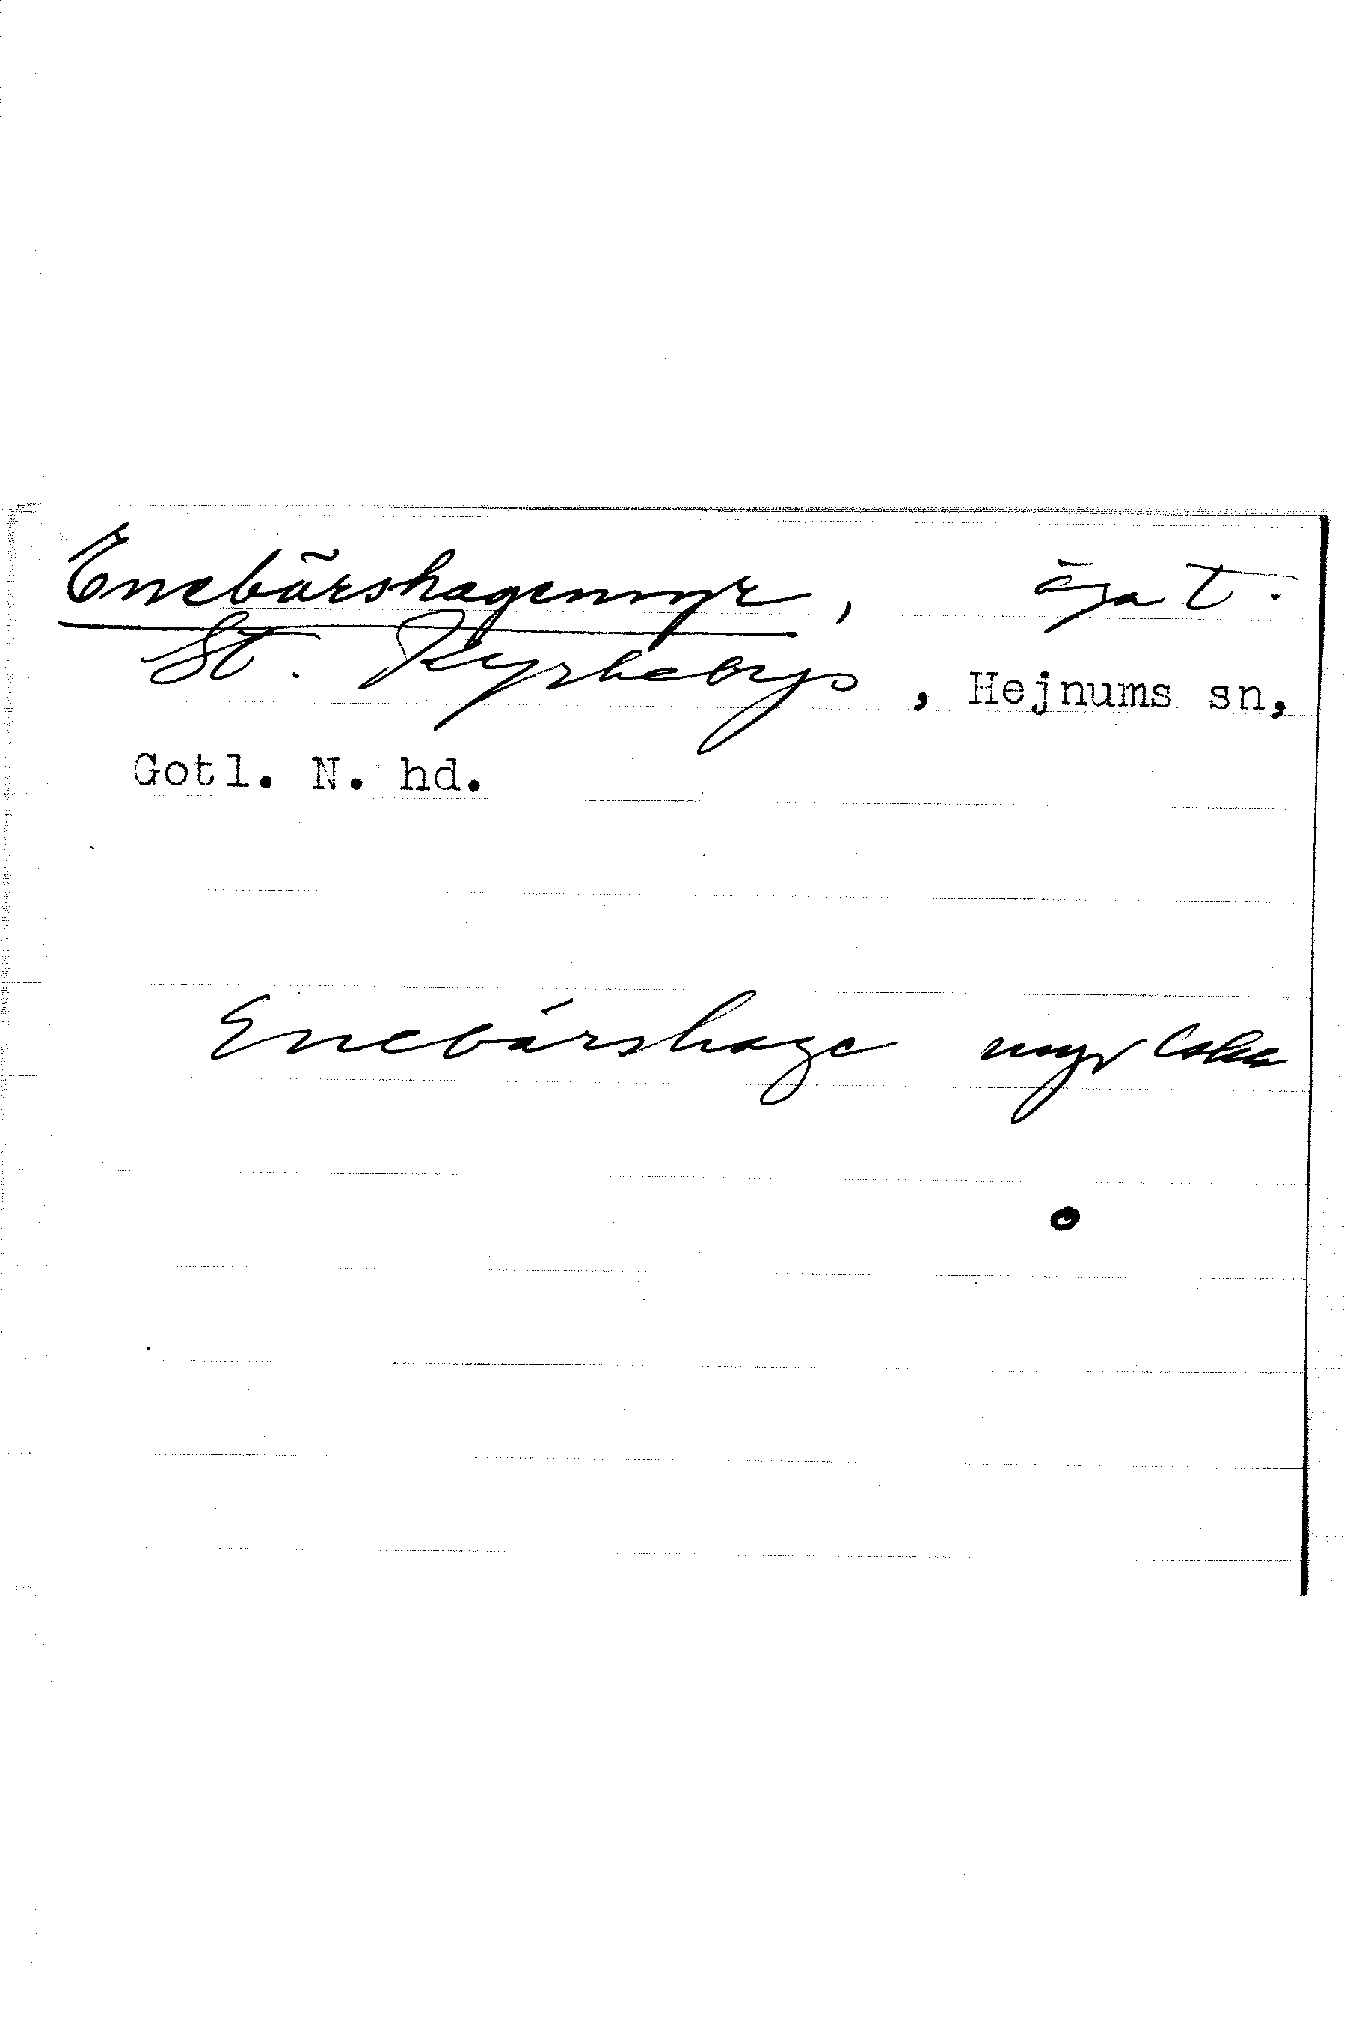 Enebärshagenmyr, äga t.
St. Kyrkebys, Hejnums sn,
Gotl. N. hd.
Enebärshage myr